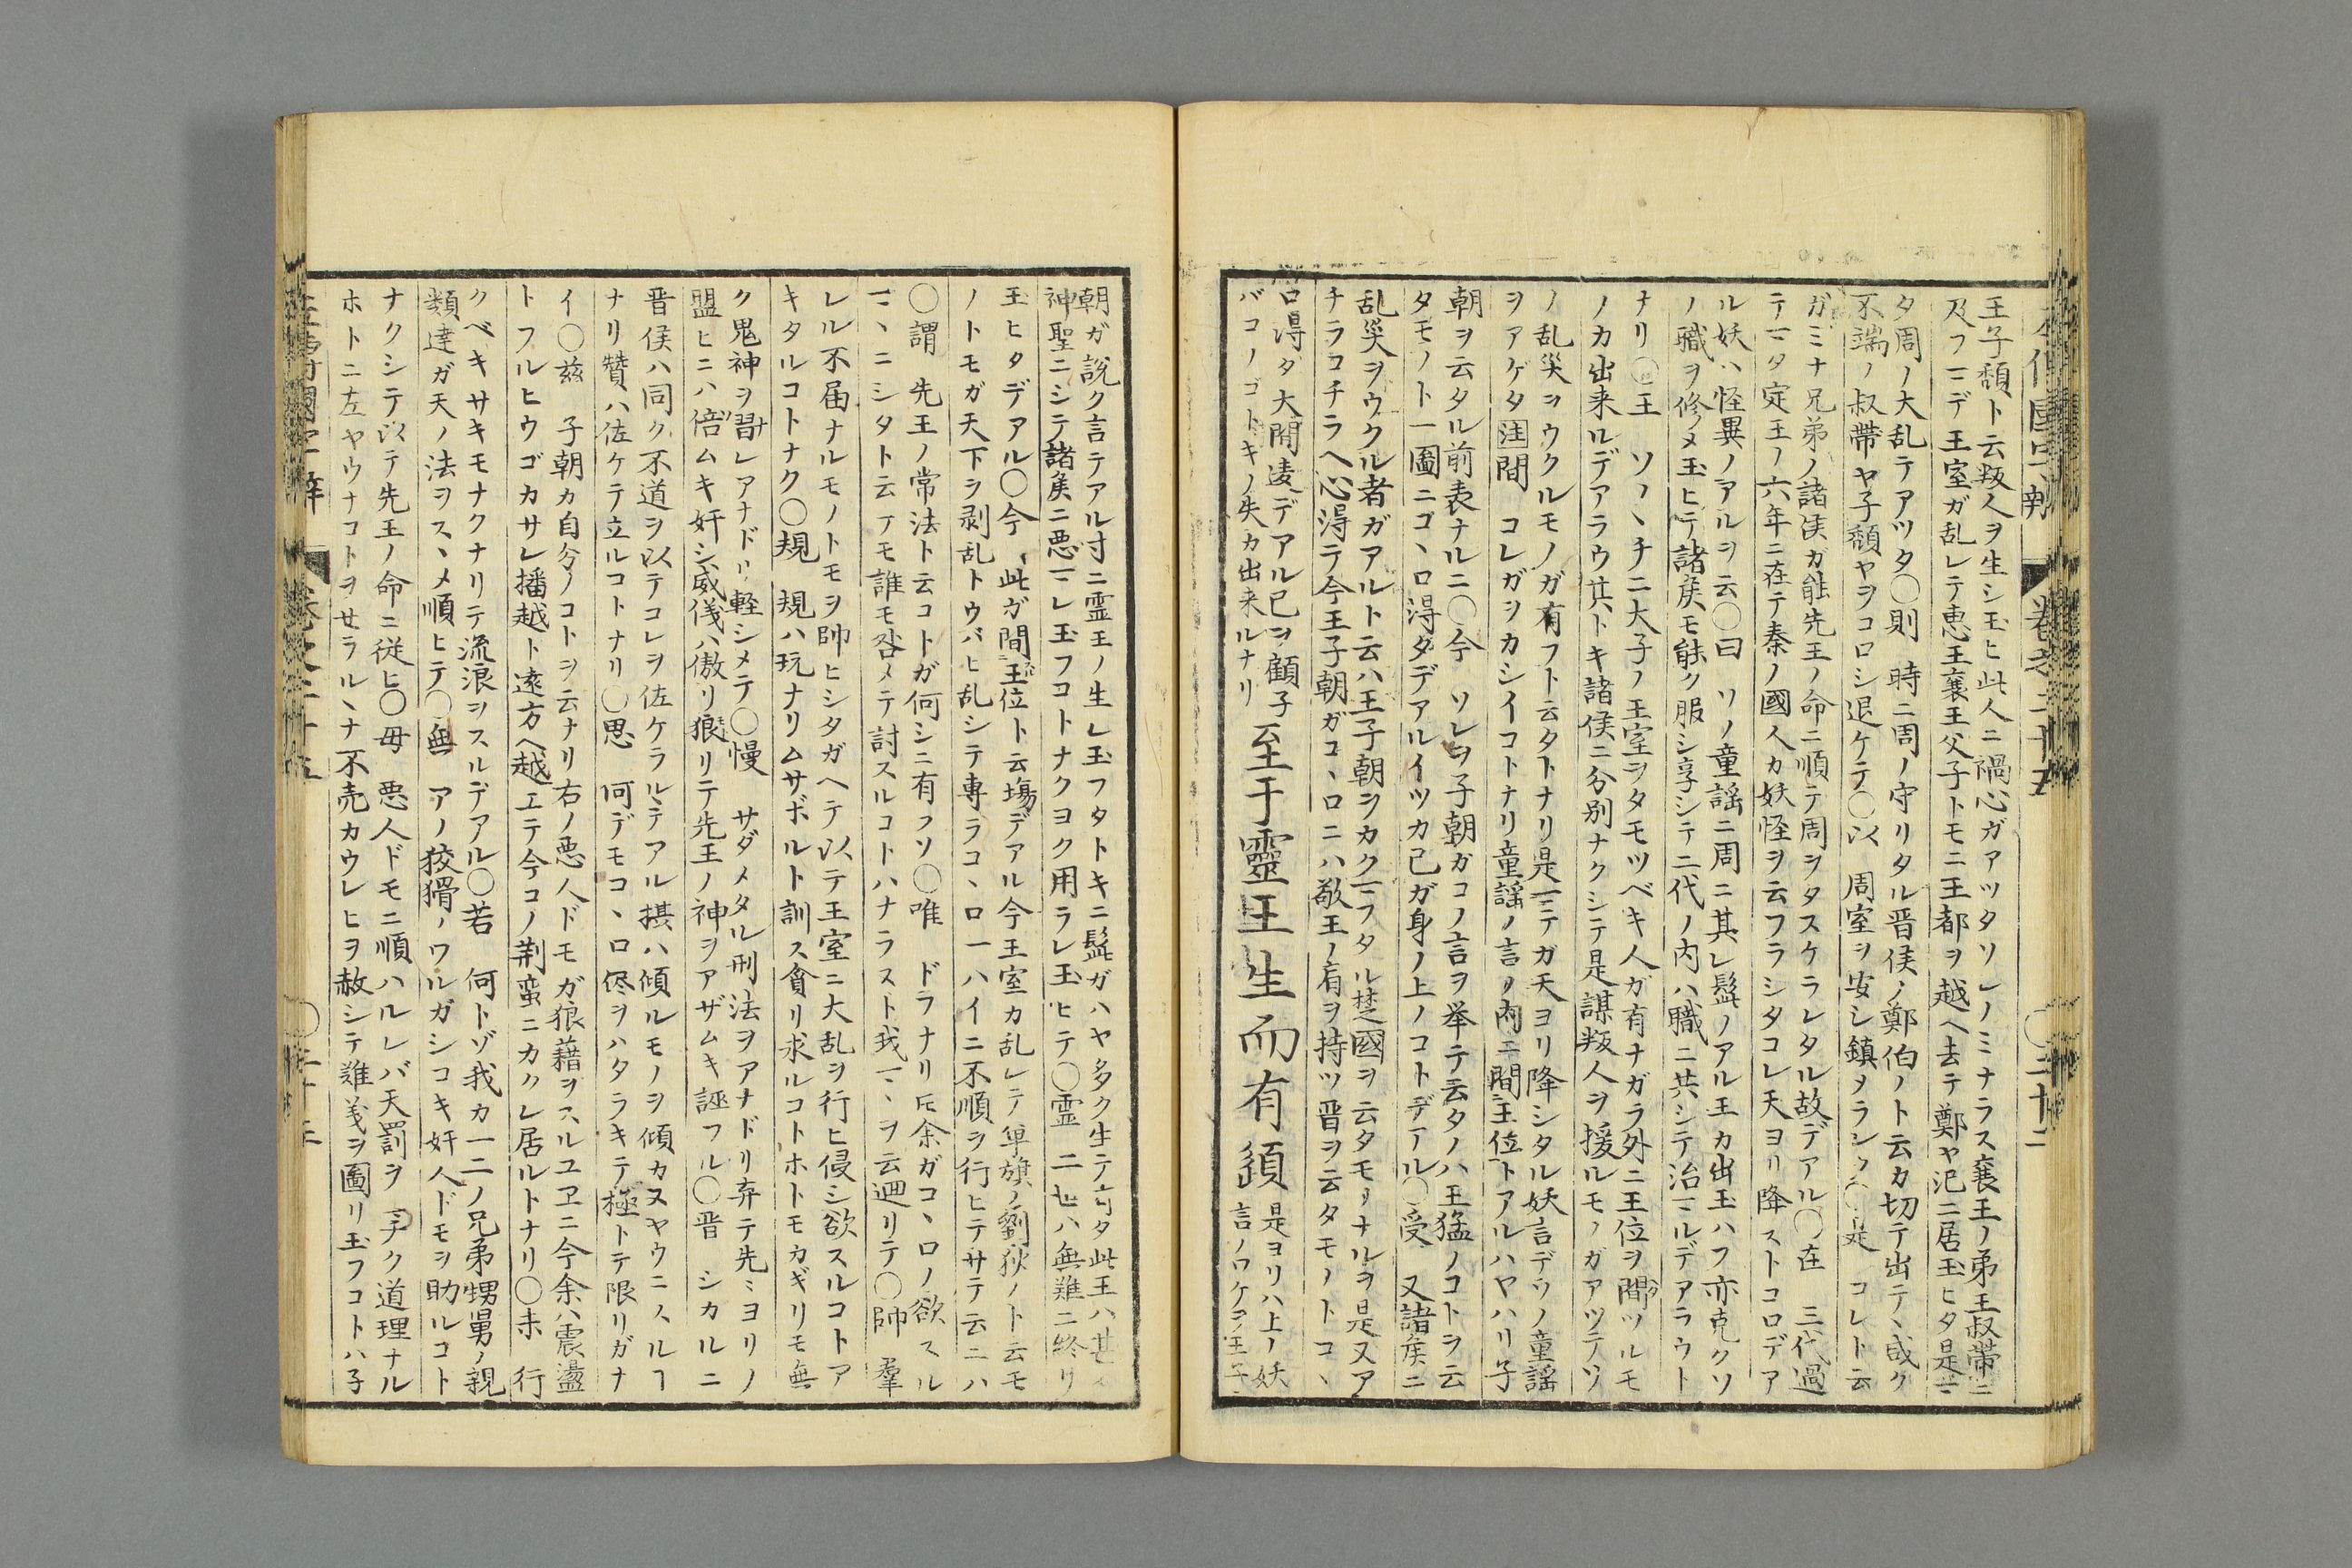 王子頽ト云叛人ヲ生シ玉ヒ此人ニ禍心ガアツタソレノミナラス襄王ノ弟王叔帯ニ
及フマデ王室ガ乱レテ恵王襄王父子トモニ王都ヲ越ヘ去テ鄭ヤ氾ニ居玉ヒタ是マ
タ周ノ大乱テアツタ〇則 時ニ周ノ守リタル晋侯ノ鄭伯ノト云カ切テ出テヽ咸ク
不端ノ叔帯ヤ子頽ヤヲコロシ退ケテ〇以 周室ヲ安シ鎮メラレタ〇是 コレト云
ガミナ兄弟ノ諸侯ガ能先王ノ命ニ順テ周ヲタスケラレタル故デアル〇在 三代過
テマタ定王ノ六年ニ在テ秦ノ國人カ妖怪ヲ云フラシタコレ天ヨリ降ストコロデア
ル妖ハ怪異ノアルヲ云〇曰 ソノ童謡ニ周ニ其レ髭ノアル王カ出玉ハフ亦克クソ
ノ職ヲ修メ玉ヒテ諸矦モ能ク服シ享シテ二代ノ内ハ職ニ共シテ治マルデアラウト
ナリ〇王 ソノヽチニ大子ノ王室ヲタモツベキ人ガ有ナガラ外ニ王位ヲ間ツルモ
ノカ出来ルデアラウ其トキ諸侯ニ分別ナクシテ是謀叛人ヲ援ルモノガアツテソ
ノ乱災ヲウクルモノガ有フト云タトナリ是マテガ天ヨリ降シタル妖言デソノ童謡
ヲアゲタ注間 コレガヲカシイコトナリ童謡ノ言ノ内ニ間王位トアルハヤハリ子
朝ヲ云タル前表ナルニ〇今 ソレヲ子朝ガコノ言ヲ挙テ云タノハ王猛ノコトヲ云
タモノト一圖ニゴヽロ淂ダデアルイツカ己ガ身ノ上ノコトデアル〇受 又諸矦ニ
乱災ヲウクル者ガアルト云ハ王子朝ヲカクマフタル楚國ヲ云タモノナルヲ是又ア
チラコチラヘ心淂テ今王子朝ガコヽロニハ敬王ノ肩ヲ持ツ晋ヲ云タモノトコヽ
ロ淂タ大間違デアル已ヲ顧子
バコノゴトキノ失カ出来ルナリ
至于靈王生而有頾
是ヨリハ上ノ妖
言ノワケヲ王子
朝ガ説ク言テアル寸ニ霊王ノ生レ玉フタトキニ髭ガハヤ多ク生テ有タ此王ハ甚
神聖ニシテ諸矦ニ悪マレ玉フコトナクヨク用ラレ玉ヒテ〇霊 二世ハ無難ニ終リ
玉ヒタデアル〇今 此ガ間王位ト云塲デアル今王室カ乱レテ単旗ノ劉狄ノト云モ
ノトモガ天下ヲ剥乱トウバヒ乱シテ專ラコヽロ一ハイニ不順ヲ行ヒテサテ云ニハ
〇謂 先王ノ常法ト云コトガ何シニ有フソ〇唯 ドラナリ𪜈余ガコヽロノ欲スル
マヽニシタト云テモ誰モ咎メテ討スルコトハナラスト我マヽヲ云𢌞リテ〇帥 羣
レル不届ナルモノトモヲ帥ヒシタガヘテ以テ王室ニ大乱ヲ行ヒ侵シ欲スルコトア
キタルコトナク〇規 規ハ玩ナリムサボルト訓ス貪リ求ルコトホトモカギリモ無
ク鬼神ヲ習レアナドリ軽シメテ〇慢 サダメタル刑法ヲアナドリ弃テ先ミヨリノ
盟ヒニハ倍ムキ奸シ威儀ハ傲リ狼リテ先王ノ神ヲアザムキ誣フル〇晋 シカルニ
晋侯ハ同ク不道ヲ以テコレヲ佐ケラルテアル摂ハ傾ルモノヲ傾カヌヤウニスルヿ
ナリ賛ハ佐ケテ立ルコトナリ〇思 何デモコヽロ侭ヲハタラキテ極トテ限リガナ
イ〇茲 子朝カ自分ノコトヲ云ナリ右ノ悪人ドモガ狼藉ヲスルユヱニ今余ハ震盪
トフルヒウゴカサレ播越ト遠方ヘ越エテ今コノ荆蛮ニカクレ居ルトナリ〇未 行
クベキサキモナクナリテ流浪ヲスルデアル〇若 何トゾ我カ一二ノ兄弟甥舅ノ親
類達ガ天ノ法ヲスヽメ順ヒテ〇無 アノ狡猾ノワルガシコキ奸人ドモヲ助ルコト
ナクシテ以テ先王ノ命ニ従ヒ〇毋 悪人ドモニ順ハルレバ天罰ヲマ子ク道理ナル
ホトニ左ヤウナコトヲせラルヽナ不売カウレヒヲ赦シテ難義ヲ圖リ玉フコトハ子